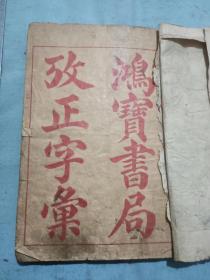 鴻寶書局
攷正字彙